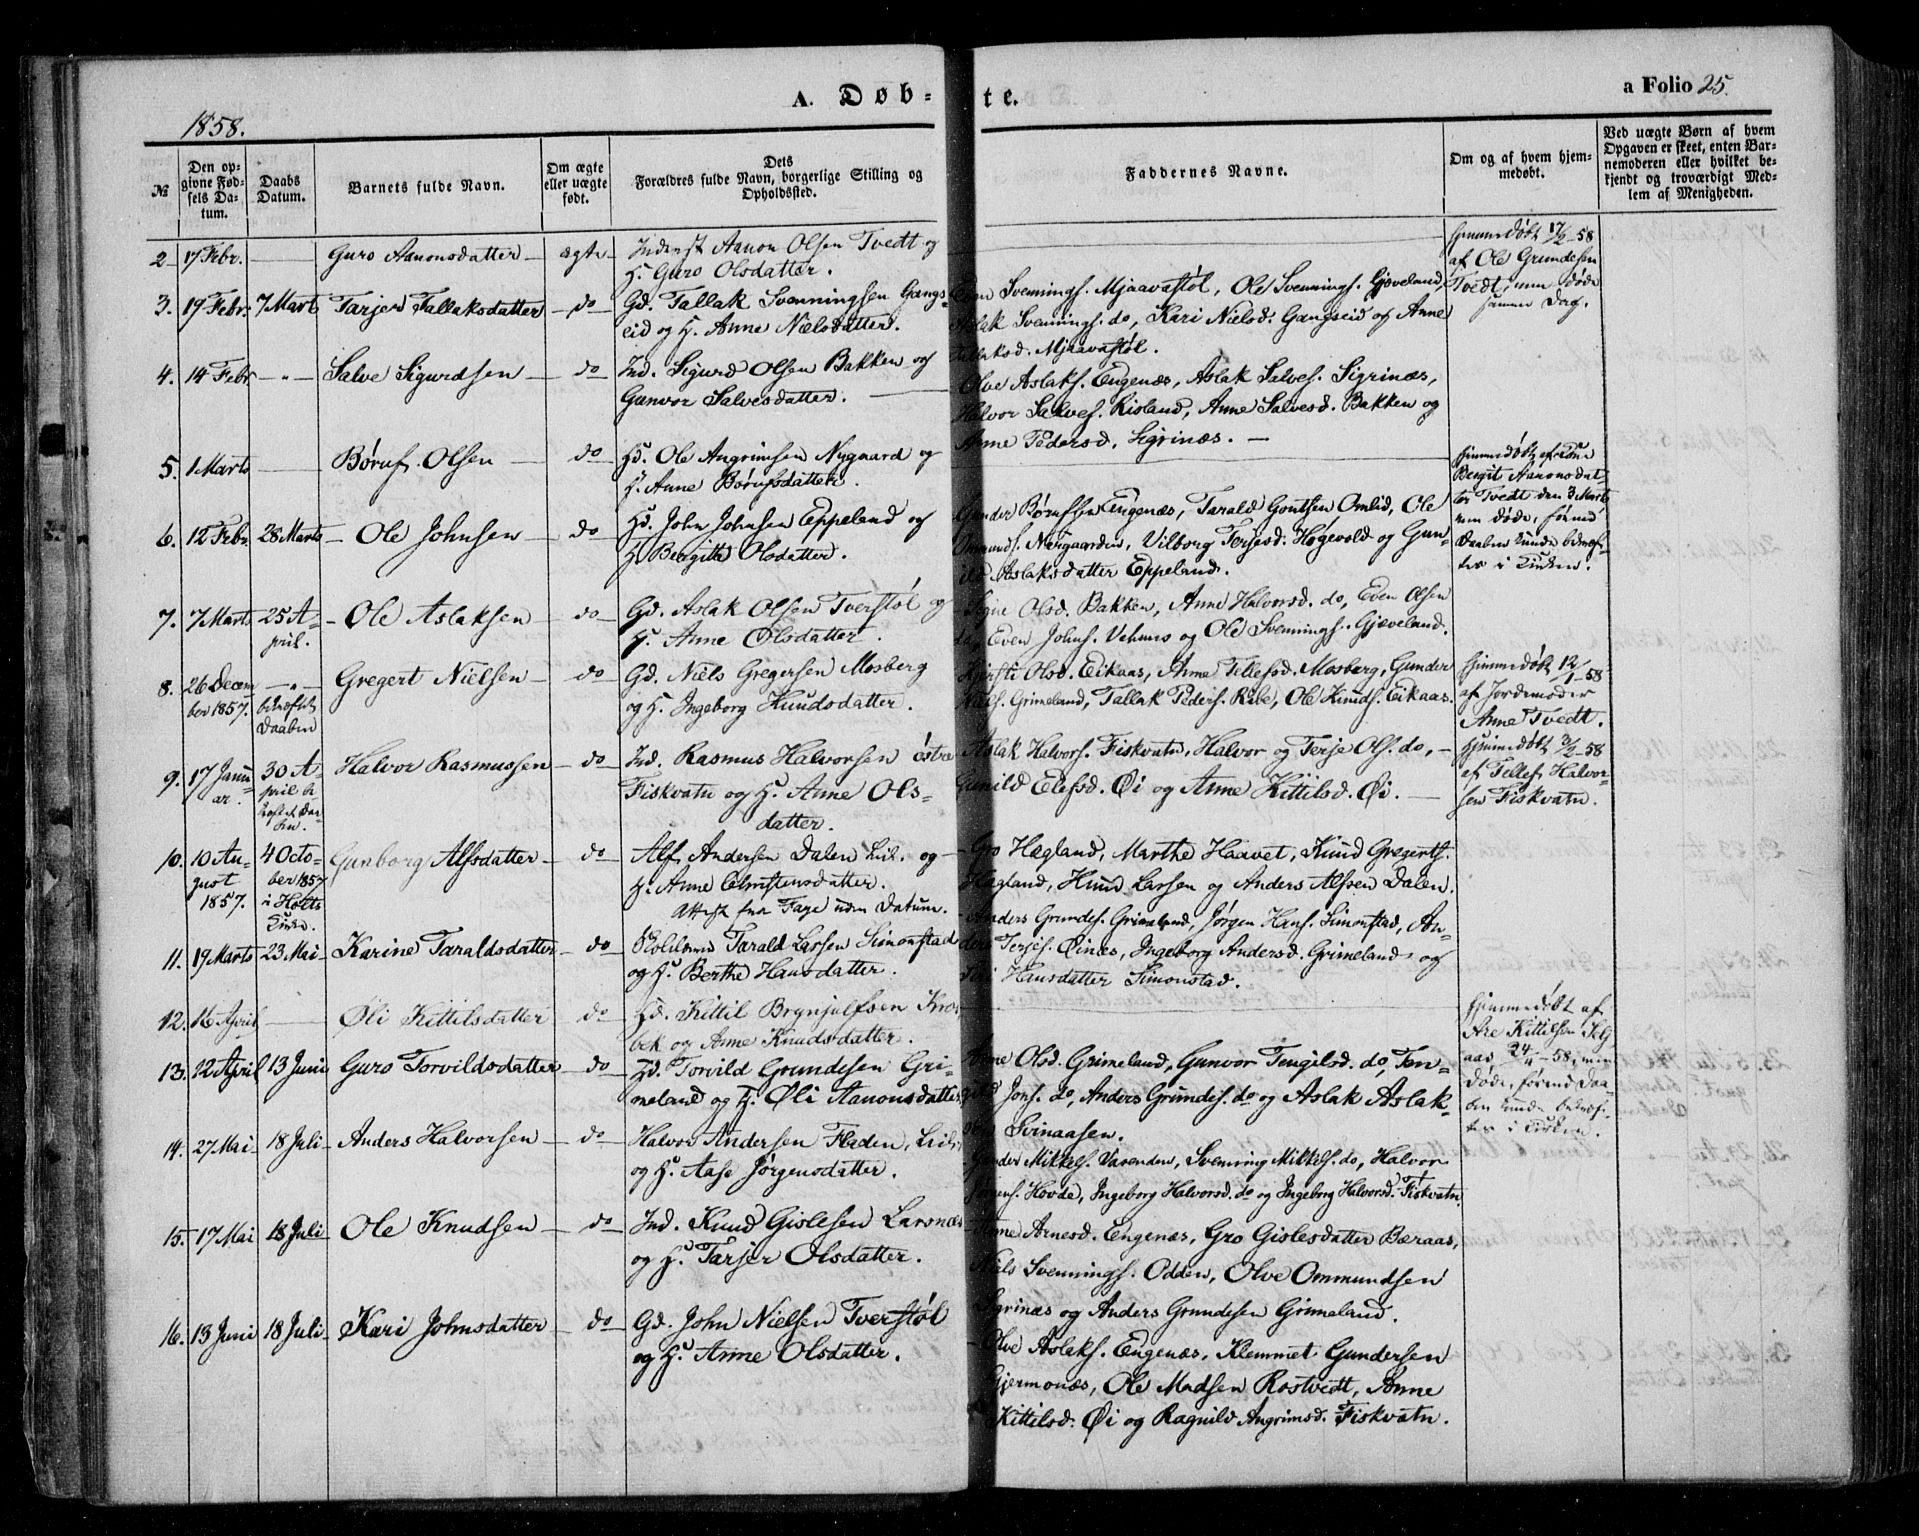 A. Døb- te.
a Folio 25.
1858.
№
Den op-
givne Fød-
sels Da-
tum.
Daabs
Datum.
Barnets fulde Navn.
Om ægte
eller uægte
født.
Dets
Forældres fulde Navn, borgerlige Stilling og
Opholdssted.
Faddernes Navne.
Om og af hvem hjem-
medøbt.
Ved uægte Børn af hvem
Opgaven er skeet, enten Bar-
nemoderen eller hvilket be-
kjendt og troværdigt Med-
lem af Menigheden.
2 17 Febr. Guro Aanonsdatter ægte
Inderst Aanon Olsen Tvedt og
H. Guro Olsdatter.
Hjemmedøbt 17/2 - 58
af Ole Grundesen
Tvedt, men døde
samme Dag.
3. 19 Febr. 7 Marts Tarjer Tallaksdatter do
Gd. Tallak Svenningsen Gangs-
eid og H. Anne Nielsdatter.
Svennings. Mjaavastøl, Ole Svennings. Gjæveland,
Aslak Svennings. do, Kari Nielsd. Gangseid og Anne
Tallaksd. Mjaavastøl.
4. 14 Febr. -"- Salve Sigurdsen do
Ind. Sigurd Olsen Bakken og
Gunvor Salvesdatter.
Olve Aslaks. Engenæs, Aslak Salves. Sigrinæs,
Halvor Salves. Risland, Anne Salvesd. Bakken og
Anne Pedersd. Sigrinæs.
5. 1 Marts Børuf Olsen do
Hd. Ole Angrimsen Nygaard og
H. Anne Børufsdatter.
Hjemmedøbt af
Bergit Aanonsdat-
ter Tvedt den 3 Marts
men døde, førend
Daaben kunde bekræf-
tes i Kirken.
6. 12 Febr. 28 Marts Ole Johnsen do
Hd. John Johnsen Eppeland og
H. Bergitte Olsdatter.
Gunder Børufsen Engenæs, Tarald Gontsen Omlid, Ole
Ommunds. Nørgaarden, Vilborg Terjesd. Høgevold og Gun-
ild Aslaksdatter Eppeland.
7. 7 Marts 25 A-
pril. Ole Aslaksen do
Gd. Aslak Olsen Tverstøl og
H. Anne Olsdatter.
Signe Olsd. Bakken, Anne Halvorsd. do, Even Olsen
do, Even Johns. Vehuus og Ole Svennings. Gjæveland.
8. 26 Decem-
ber 1857. -"-
bekræftet
Daaben
Gregert Nielsen do
Gd. Niels Gregersen Mosberg
og H. Ingeborg Knudsdatter.
Kjersti Olsd. Eikaas, Anne Tellefsd. Mosberg, Gunder
Niels. Grimeland, Tallak Peders. Ribe, Ole Knuds. Eikaas.
Hjemmedøbt 12/1 - 58
af Jordemoder
Anne Tvedt.
9. 17 Janu-
ar. 30 A-
pril
Halvor Rasmussen do
Ind. Rasmus Halvorsen østre
Fiskvatn og H. Anne Ols-
datter.
Aslak Halvors. Fiskvatn, Halvor og Terje Ols. do,
Gunild Elefsd. Øi og Anne Kittilsd. Øi.
Hjemmedøbt 3/2 - 58
af Tellef Halvor-
sen Fiskvatn.
10. 10 Au-
gust
1857. 4 Octo-
ber 1857
i Holts
Kirke.
Gunborg Alfsdatter do
Alf Andersen Dalen og
H. Anne Christensdatter.
Attest fra Faye uden Datum.
Gro Hægland, Marthe Haavet, Knud Gregerts.
Hægland, Knud Larsen og Anders Alfsen Dalen.
11. 19 Marts 23 Mai Karine Taraldsdatter do
Tarald Larsen Simonstad
og H. Berthe Hansdatter.
Anders Grundes. Grimeland, Jørgen Hans. Simonstad, An-
ders Terjes. Øinæs, Ingeborg Andersd. Grimeland og
Hansdatter Simonstad.
12. 16 April Øli Kittilsdatter do
Hd. Kittil Brynjulfsen
bek og Anne Knudsdatter.
Hjemmedøbt af
Are Kittilsen Selg-
aas 24/4 - 58, men
døde, førend Daa-
ben kunde bekræf-
tes i Kirken.
13. 22 April 13 Juni Guro Torvildsdatter do
Hd. Torvild Grundesen Gri-
meland og H. Øli Aanonsdatter
Anne Olsd. Grimeland, Gunvor Tengilsd. do, Ten-
gild Jons. do, Anders Grundes. do og Aslak Aslak-
sen Svinaasen.
14. 27 Mai 18 Juli Anders Halvorsen do
Halvor Andersen Fladen,
og H. Aase Jørgensdatter.
Gunder Mikkels. Vasenden, Svenning Mikkels. do, Halvor
Jørgens. Hovde, Ingeborg Halvorsd. do og Ingeborg Halvorsd. Fiskvatn.
15. 17 Mai 18 Juli Ole Knudsen do
Ind. Knud Gislesen Larsnæs
og H. Tarjer Olsdatter.
Anne Arnesd. Engenæs, Gro Gislesdatter Bæraas,
Niels Svennings. Odden, Olve Ommundsen
Sigrinæs og Anders Grundesen Grimeland.
16. 13 Juni 18 Juli Kari Johnsdatter do
Gd. John Nielsen Tverstøl
og H. Anne Olsdatter.
Olve Aslaks. Engenæs, Klemmet Gundersen
Gjermonæs, Ole Madsen Rostvedt, Anne
Kittilsd. Øi og Ragnild Angrimsd. Fiskvatn.